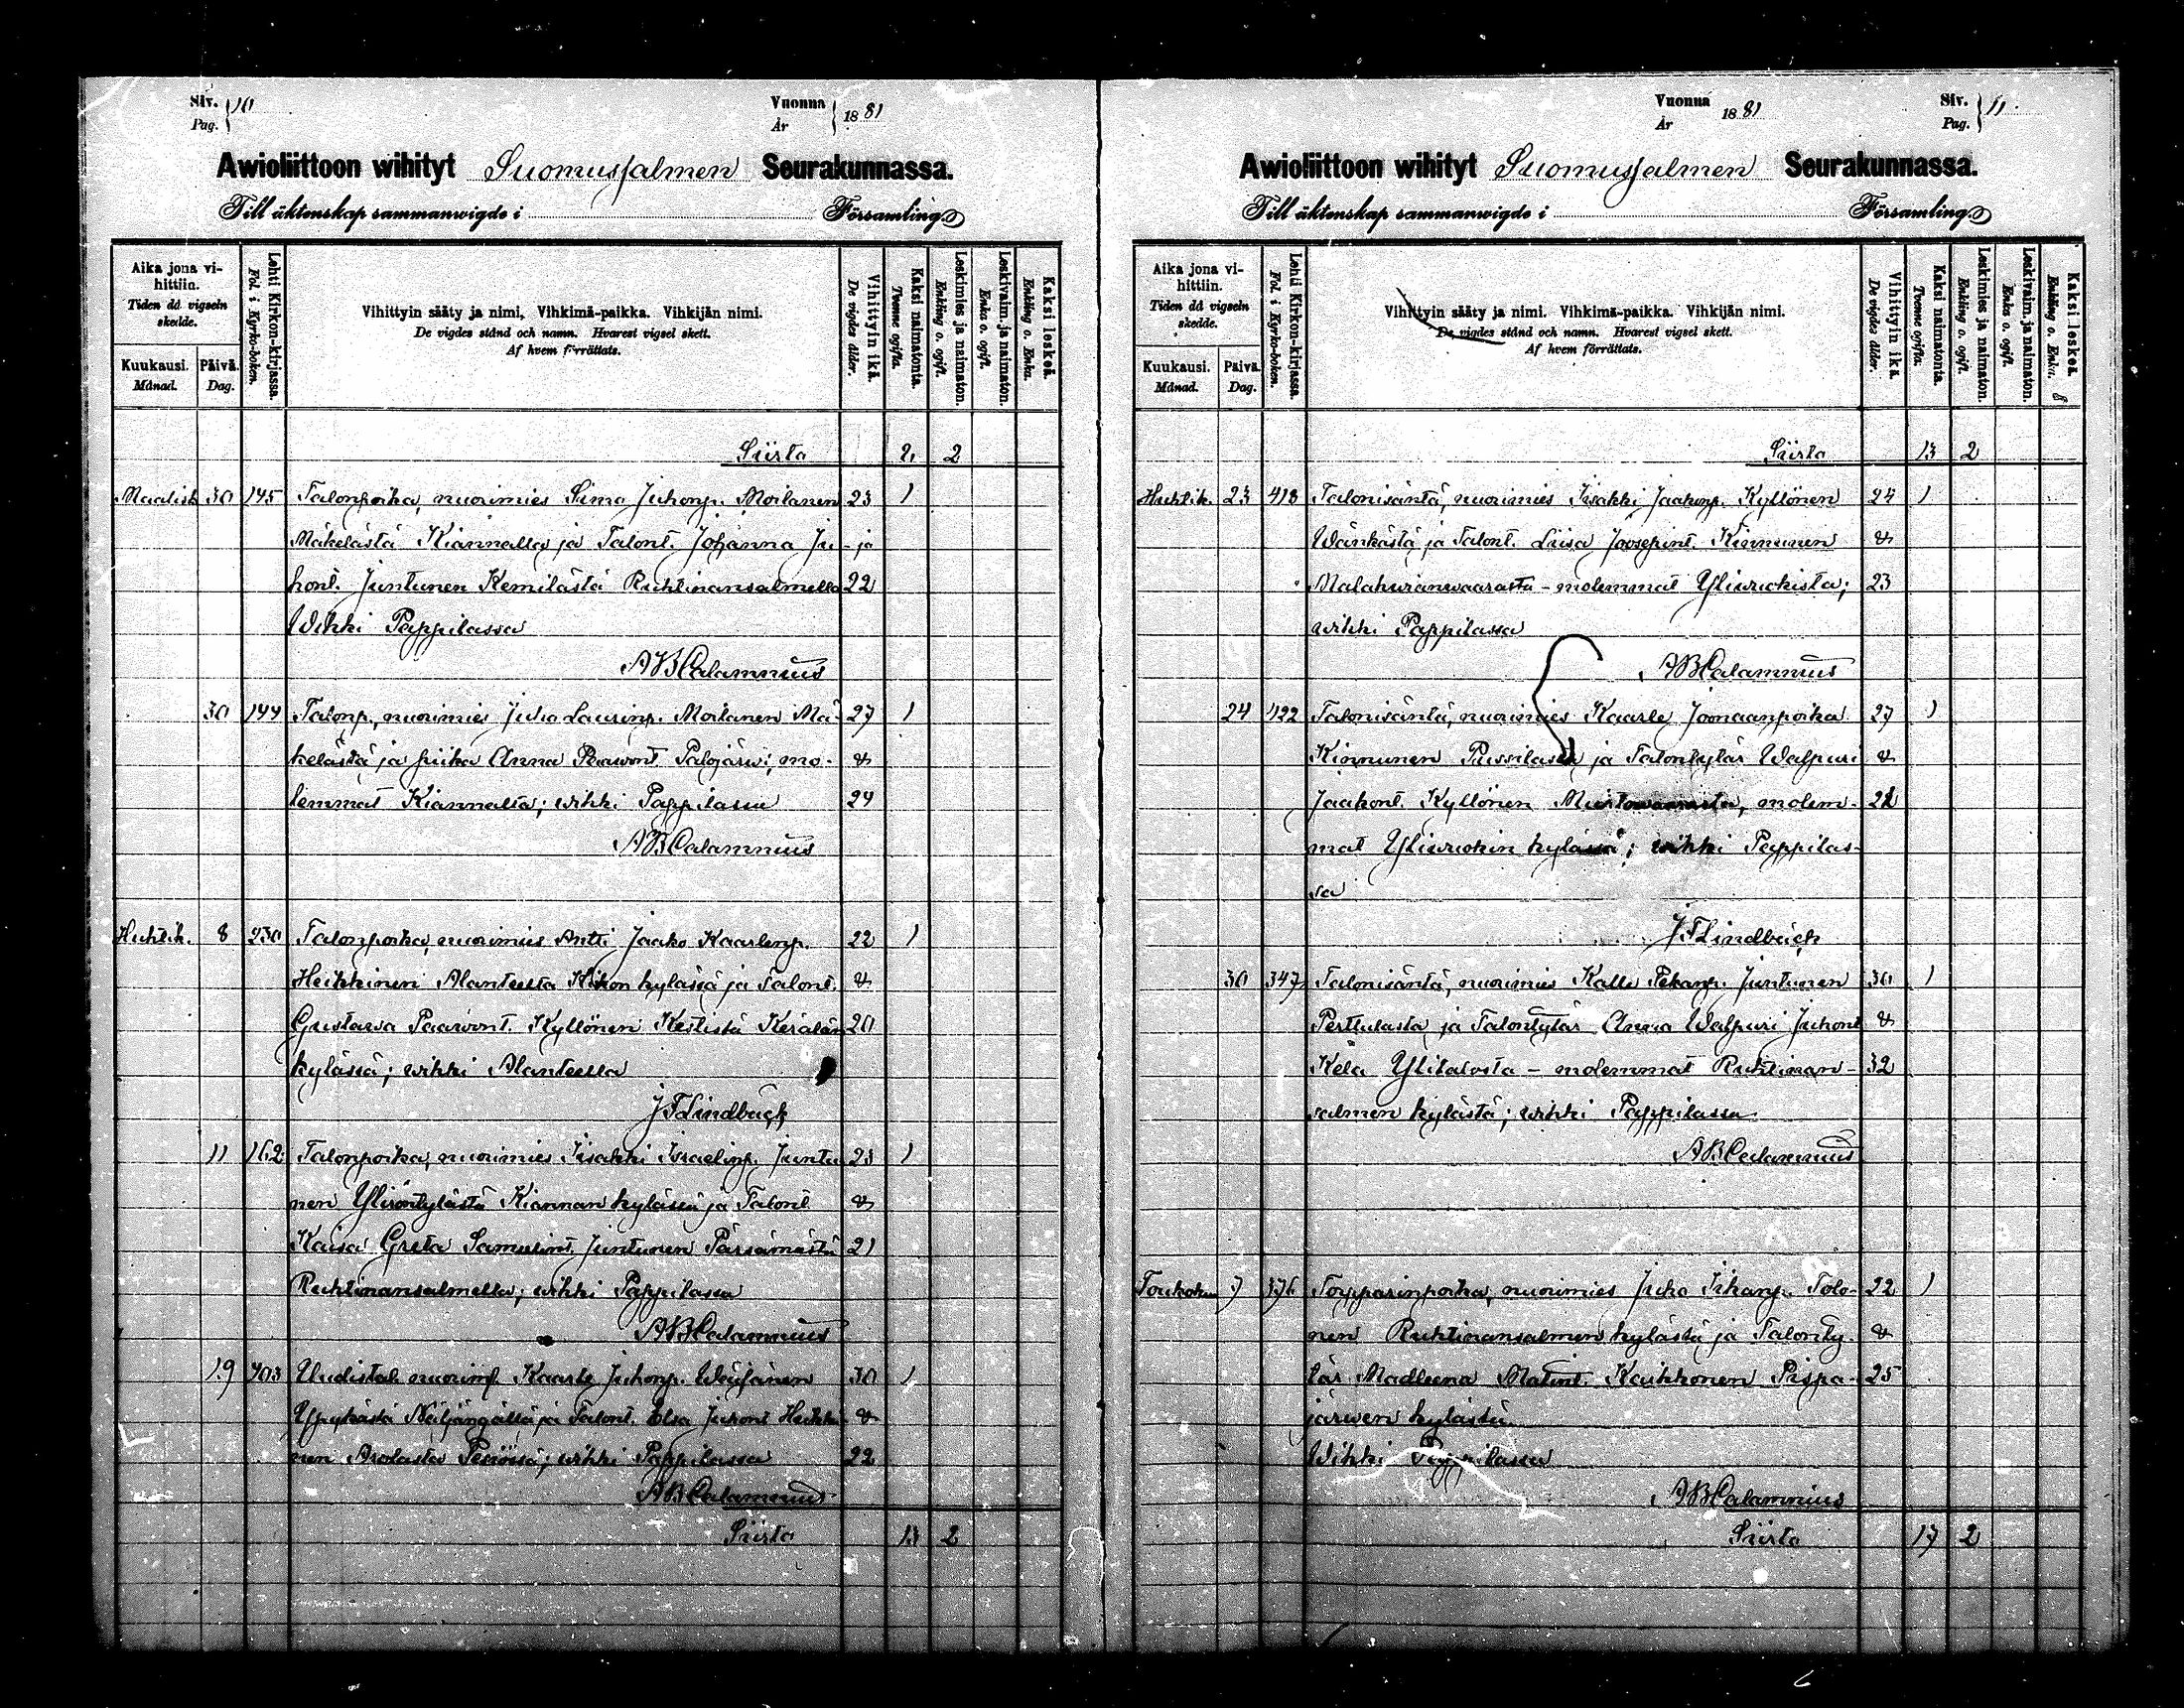 Siv. Pag. } 10
Vuonna År } 1881
Awioliittoon wihityt Suomussalmen Seurakunnassa.
Till äktenskap sammanwigde i Församling.
Aika jona vihittiin.
Tiden då vigseln skedde.
Kuukausi. Månad.
Päivä. Dag.
Lehti Kirkon-kirjassa. Fol. i Kyrko-boken.
Vihittyin sääty ja nimi, Vihkimä-paikka. Vihkijän nimi.
De vigdes stånd och namn. Hvarest vigsel skett.
Af hvem förrättats.
Vihittyin ikä. De vigdes ålder.
Kaksi naimatonta. Tvenne ogifta.
Leskimies ja naimaton. Enkling o. ogift.
Leskivaim. ja naimaton. Enka o. ogift.
Kaksi leskeä. Enkling o. Enka.
Siirto 2
Maalisk. 30 145 Talonpoika, nuorimies Simo Juhonp. Moilanen 23 1
Mäkelästä Kiannalla ja Talont. Johanna Ju- ja
hont. Juntunen Kemilästä Ruhtinansalmella 22
Wihki Pappilassa
AB Calamnius
30 144 Talonp., nuorimies Juho Laurinp. Moilanen Mä- 27 1
kelästä ja piika Anna Paavont. Palojärvi; mo- &
lemmat Kiannalta; wihki Pappilassa 24
AB Calamnius
Huhtik. 8 230 Talonpoika, nuorimies Antti Jaako Kaarlenp. 22 1
Heikkinen Alanteesta kylässä ja Talont. &
Gustaava Paavont. Kyllönen Kestistä Kerälän 20
kylässä; wihki Alanteella
J F Lindbäck
11 162 Talonpoika, nuorimies Iisakki Israelinp. Juntu 23 1
nen Kiannan kylässä ja Talont. &
Kaisa Greta Samuelint. Juntunen Pärsämästä 21
Ruhtinansalmella; wihki Pappilassa
AB Calamnius
19 403 Uudistal. nuorim. Kaarle Juhonp. Wäyränen 30 1
Näljängällä ja Talont. Elsa Juhont Heikki- &
nen Arolasta Pesiössä; wihki Pappilassa 22
AB Calamnius
Siirto 13 2
Vuonna År 1881
Siv. Pag. } 11.
Awioliittoon wihityt Suomussalmen Seurakunnassa.
Till äktenskap sammanwigde i Församling.
Aika jona vihittiin.
Tiden då vigseln skedde.
Kuukausi. Månad.
Päivä. Dag.
Lehti Kirkon-kirjassa. Fol. i Kyrko-boken.
Vihittyin sääty ja nimi. Vihkimä-paikka. Vihkijän nimi.
De vigdes stånd och namn. Hvarest vigsel skett.
Af hvem förrättats.
Vihittyin ikä. De vigdes ålder.
Kaksi naimatonta. Tvenne ogifta.
Leskimies ja naimaton. Enkling o. ogift.
Leskivaim. ja naimaton. Enka o. ogift.
Kaksi leskeä. Enkling o. Enka.
Siirto 13 2
Huhtik. 23 418 Talonisäntä, nuorimies Iisakki Jaakonp. Kyllönen 24 1
Wänkästä ja Talont. Liisa Joosepint. Kinnunen &
molemmat Yliwuokista; 23
wihki Pappilassa
AB Calamnius
24 422 Talonisäntä, nuorimies Kaarle Joonaanpoika 27 1
Kinnunen ja Talontytär Walpuri &
Jaakont. Kyllönen molem-
mat Yliwuokin kylässä; wihki Pappilas-
sa
J F Lindbäck
30 347 Talonisäntä, nuorimies Kalle Pekanp. Juntunen 30 1
Perttulasta ja Talontytär Anna Walpuri Juhont &
Kela Ylitalosta – molemmat Ruhtinan- 32
salmen kylästä; wihki Pappilassa
AB Calamnius
Toukokuu 7 376 Torpparinpoika, nuorimies Juho Iikanp. Tolo- 22 1
nen Ruhtinansalmen kylästä ja Talonty- &
tär Madleena Matint. Karkkonen Pispa- 25
järwen kylästä.
Wihki Pappilassa
AB Calamnius
Siirto 17 2